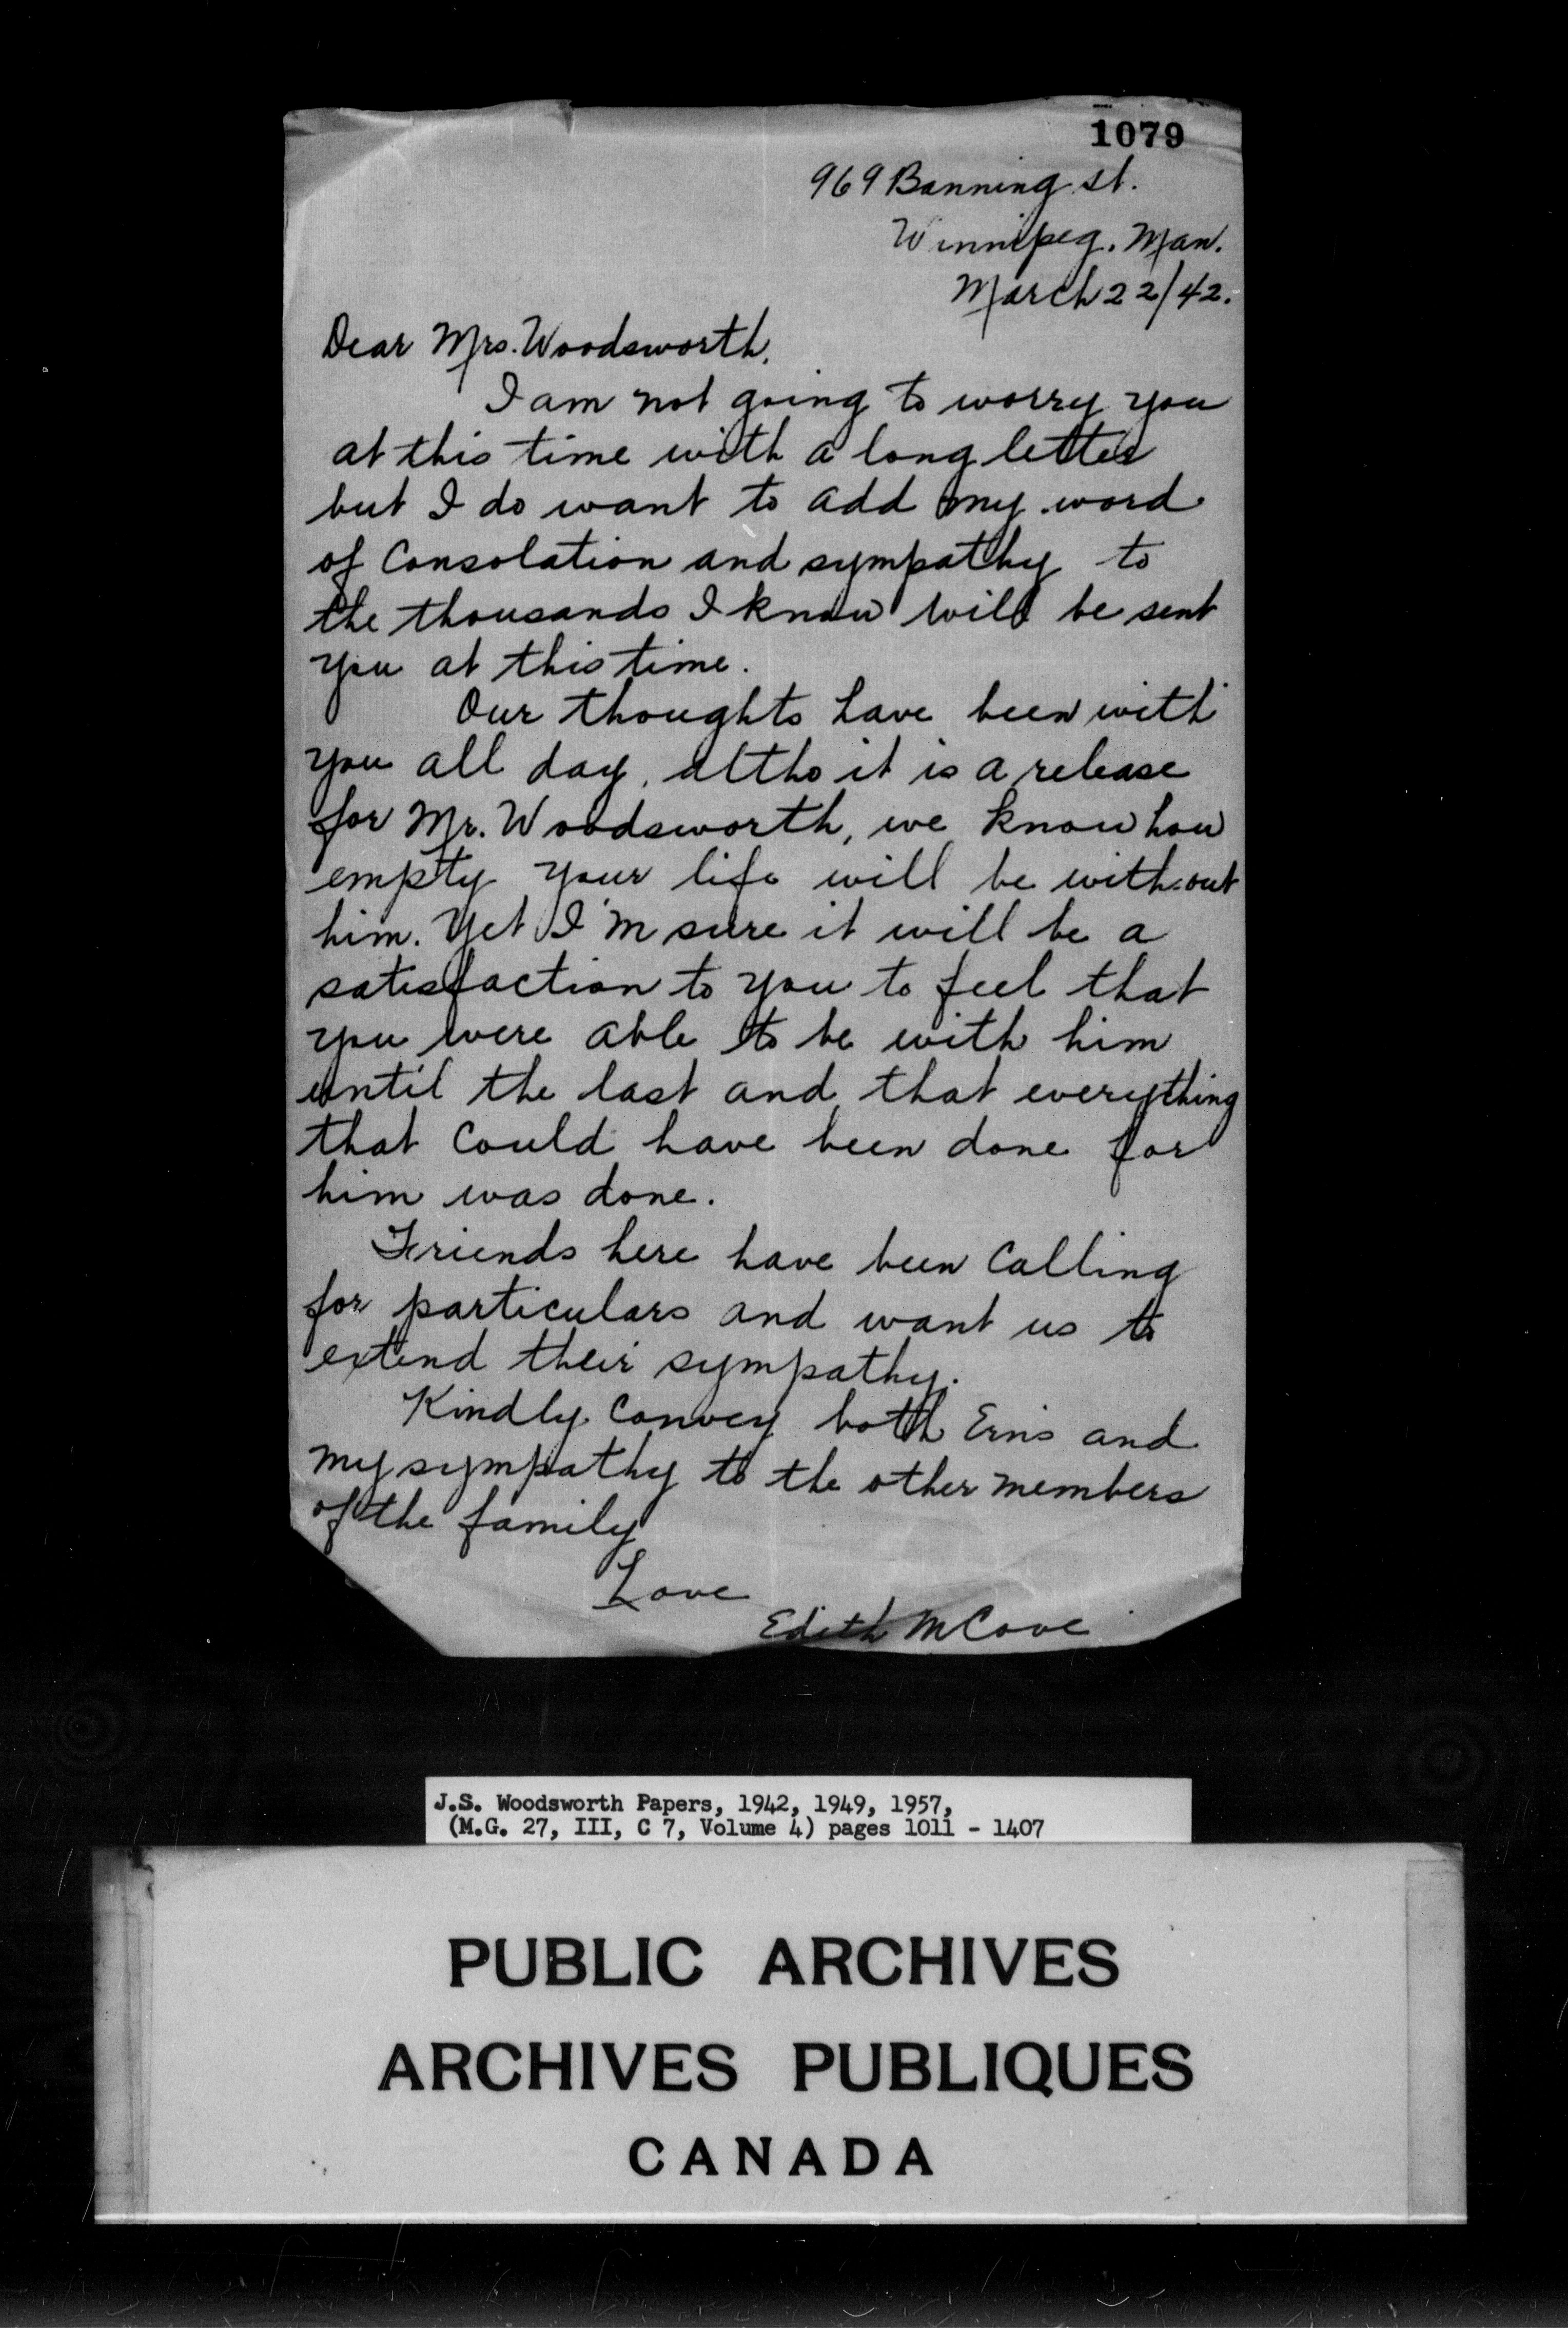 1079
969 Banning st.
Winnipeg. Man.
March 22/42.
Dear Mrs. Woodsworth,
I am not going to worry you
at this time with a long letter
but I do want to add my word
of Consolation and sympathy to
the thousands I know will be sent
you at this time.
Our thoughts have been with
you all day, altho it is a release
for Mr. Woodsworth, we know how
empty your life will be without
him. Yet I'm sure it will be a
satisfaction to you to feel that
you were able to be with him
until the last and that everything
that could have been done for
him was done.
Friends here have been calling
for particulars and want us to
extend their sympathy.
Kindly convey both Erns and
my sympathy to the other members
of the family
Love
Edith McCove
J.S. Woodsworth Papers, 1942, 1949, 1957,
(M.G. 27, III, C 7, Volume 4) pages 1011 - 1407
PUBLIC ARCHIVES
ARCHIVES PUBLIQUES
CANADA